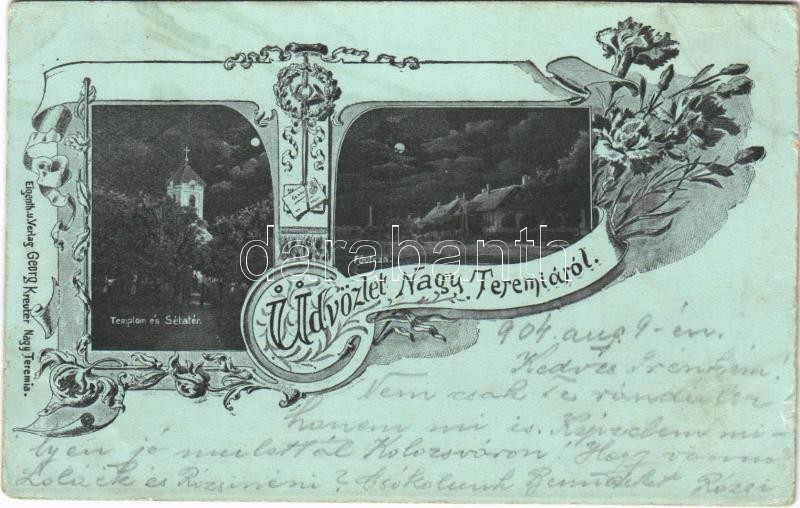 Templom és Sétatér.
Főutcza
Üdvözlet Nagy Teremiáról.
Eigenth. u. Verlag Georg Kreuter Nagy Teremia.
darabanth.com
904. aug 9-én.
Kedves Irénkém!
Nem csak te rándulsz
hanem mi is. Képzelem mi-
lyen jó mulattál Kolozsváron! Hogy vannak
Loláék és Rózsinéni? Csókolunk Bennetek Rózsi